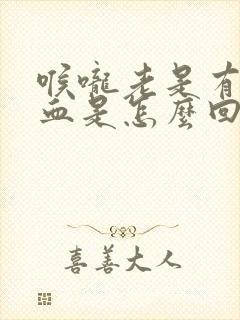 喉嚨老是有
血是怎麼回
喜善大人